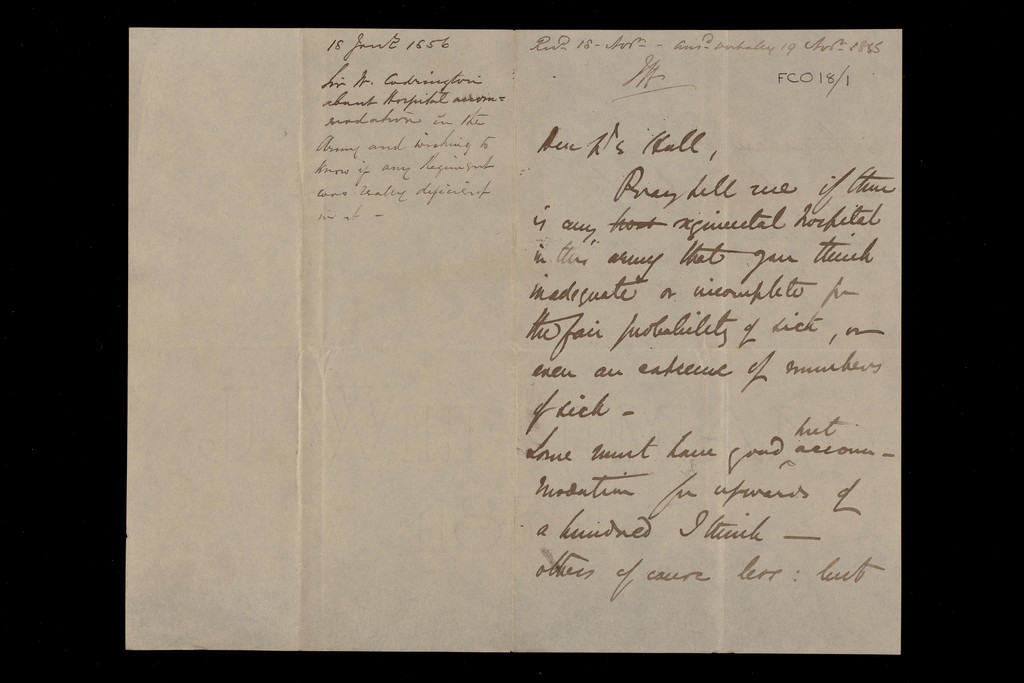 18 Janʸ 1856
Sir W. Codrington
about Hospital accom=
modation in the
Army and wishing to
know if any Regiment
was really deficient
in it -
Recᵈ 18 - Novʳ - ansᵈ verbally 19 Novʳ 1855
JH
FCO18/1
Dear Dʳ Hall,
Pray tell me if there
is any host regimental hospital
in this army that you think
inadequate or incomplete for
the fair probability of sick, or
even an extreme of numbers
of sick -
hut
Some must have good accom-
modation for upwards of
a hundred I think —
others of course less : but